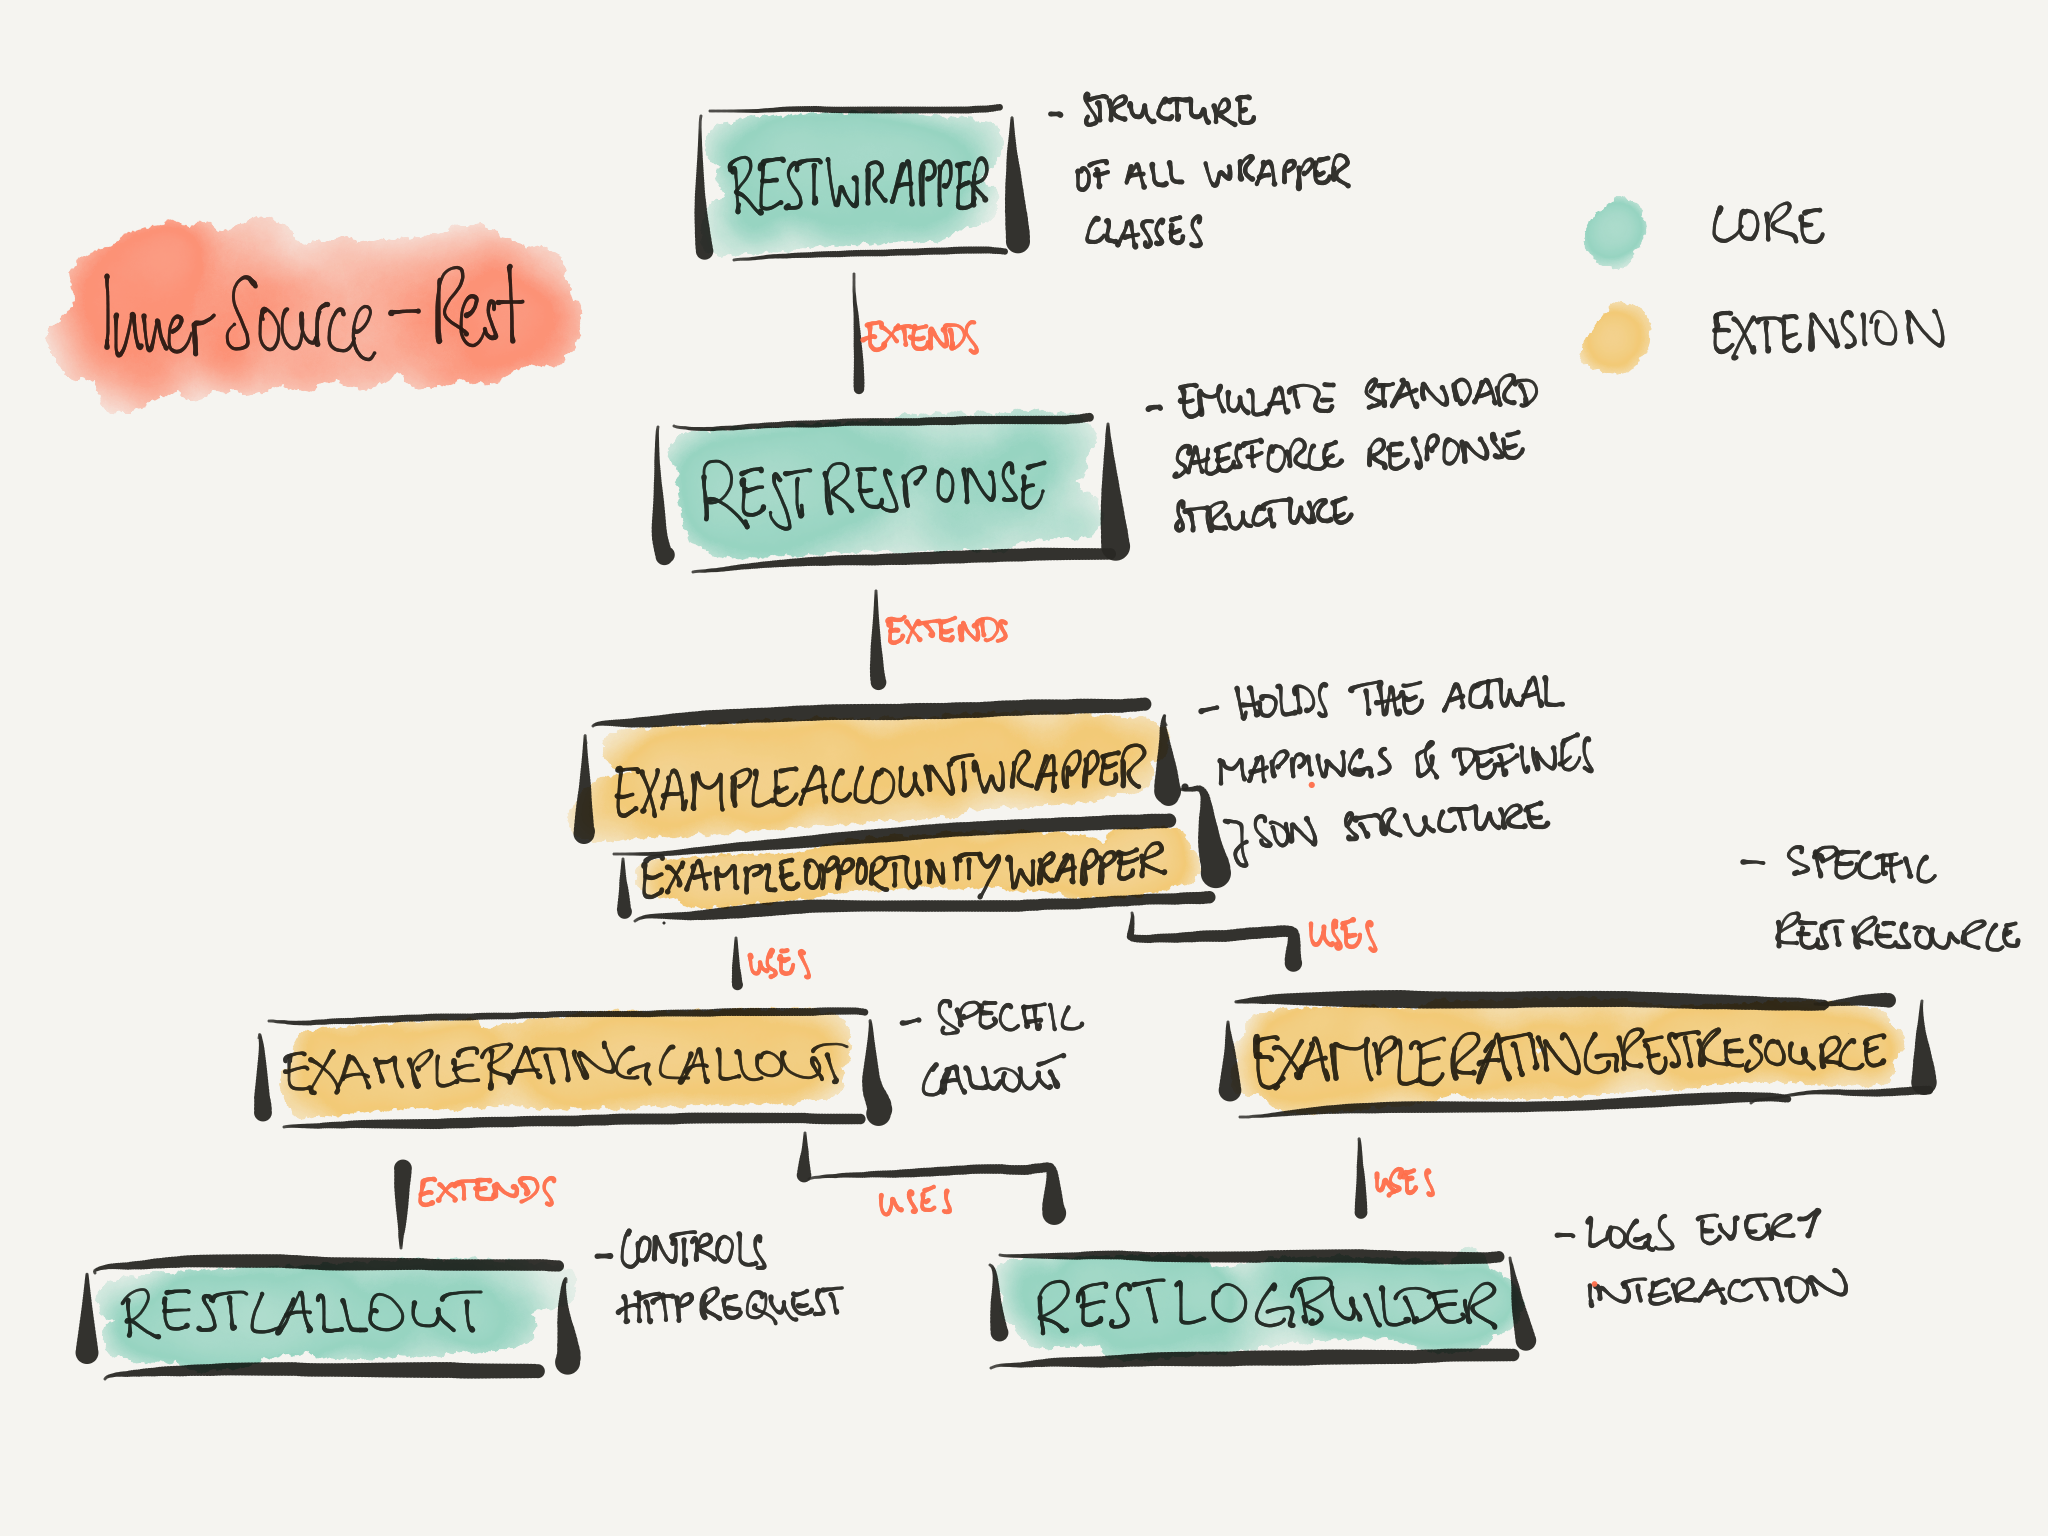 InnerSource-Rest
RESTWRAPPER
- STRUCTURE
OF ALL WRAPPER
CLASSES
CORE
EXTENSION
EXTENDS
RESTRESPONSE
- EMULATE STANDARD
SALESFORCE RESPONSE
STRUCTURE
EXTENDS
EXAMPLEACCOUNTWRAPPER
EXAMPLEOPPORTUNITYWRAPPER
- HOLDS THE ACTUAL
MAPPINGS & DEFINES
JSON STRUCTURE
USES
USES
EXAMPLERATINGCALLOUT
- SPECIFIC
CALLOUT
- SPECIFIC
RESTRESOURCE
EXAMPLERATINGRESTRESOURCE
EXTENDS
USES
USES
RESTCALLOUT
- CONTROLS
HTTPREQUEST
RESTLOGBUILDER
- LOGS EVERY
INTERACTION